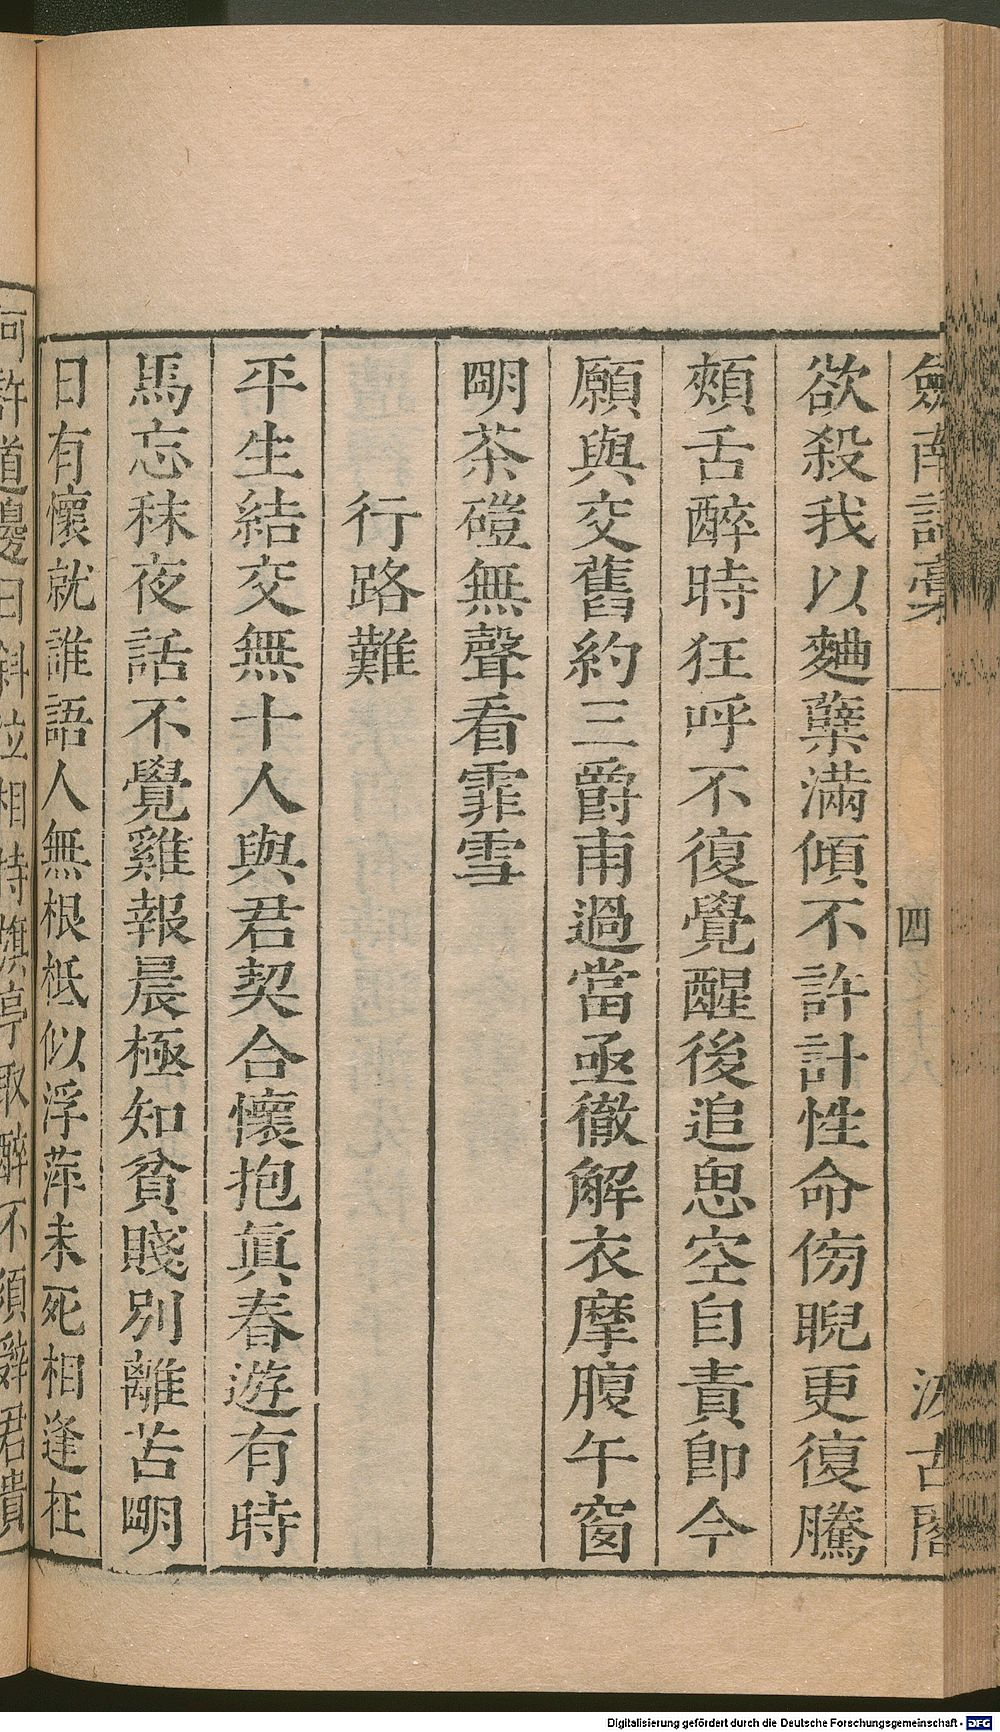 劒南詩稾 四 汲古閣
欲殺我以麯蘖滿傾不許計性命傍睨更復騰
頰舌醉時狂呼不復覺醒後追思空自責卽今
願與交舊約三爵甫過當亟徹解衣摩腹午窗
朙茶磑無聲看霏雪
行路難
平生結交無十人與君契合懷抱眞春遊有時
馬忘秣夜話不覺雞報晨極知貧賤別離苦朙
日有懷就誰語人無根柢似浮萍未死相逢在
何許道邊日斜泣相持旗亭取醉不須辭君貴
Digitalisierung gefördert durch die Deutsche Forschungsgemeinschaft - DFG